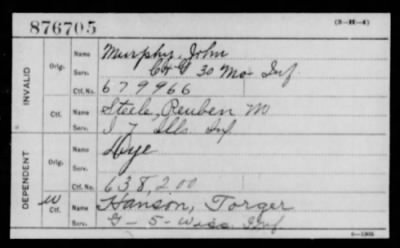 876705
(3-H-4)
INVALID
Orig. Name Murphy, John
Serv. Co G 30 Mo. Inf.
Ctf. No. 679966
Ctf. Name Steele, Reuben M
Serv. I 7 Ills Inf
DEPENDENT
Orig. Name Dye
Serv.
Ctf. No. 638,200
W Ctf. Name Hanson, Torger
Serv. G - 5 - Wiss. Inf